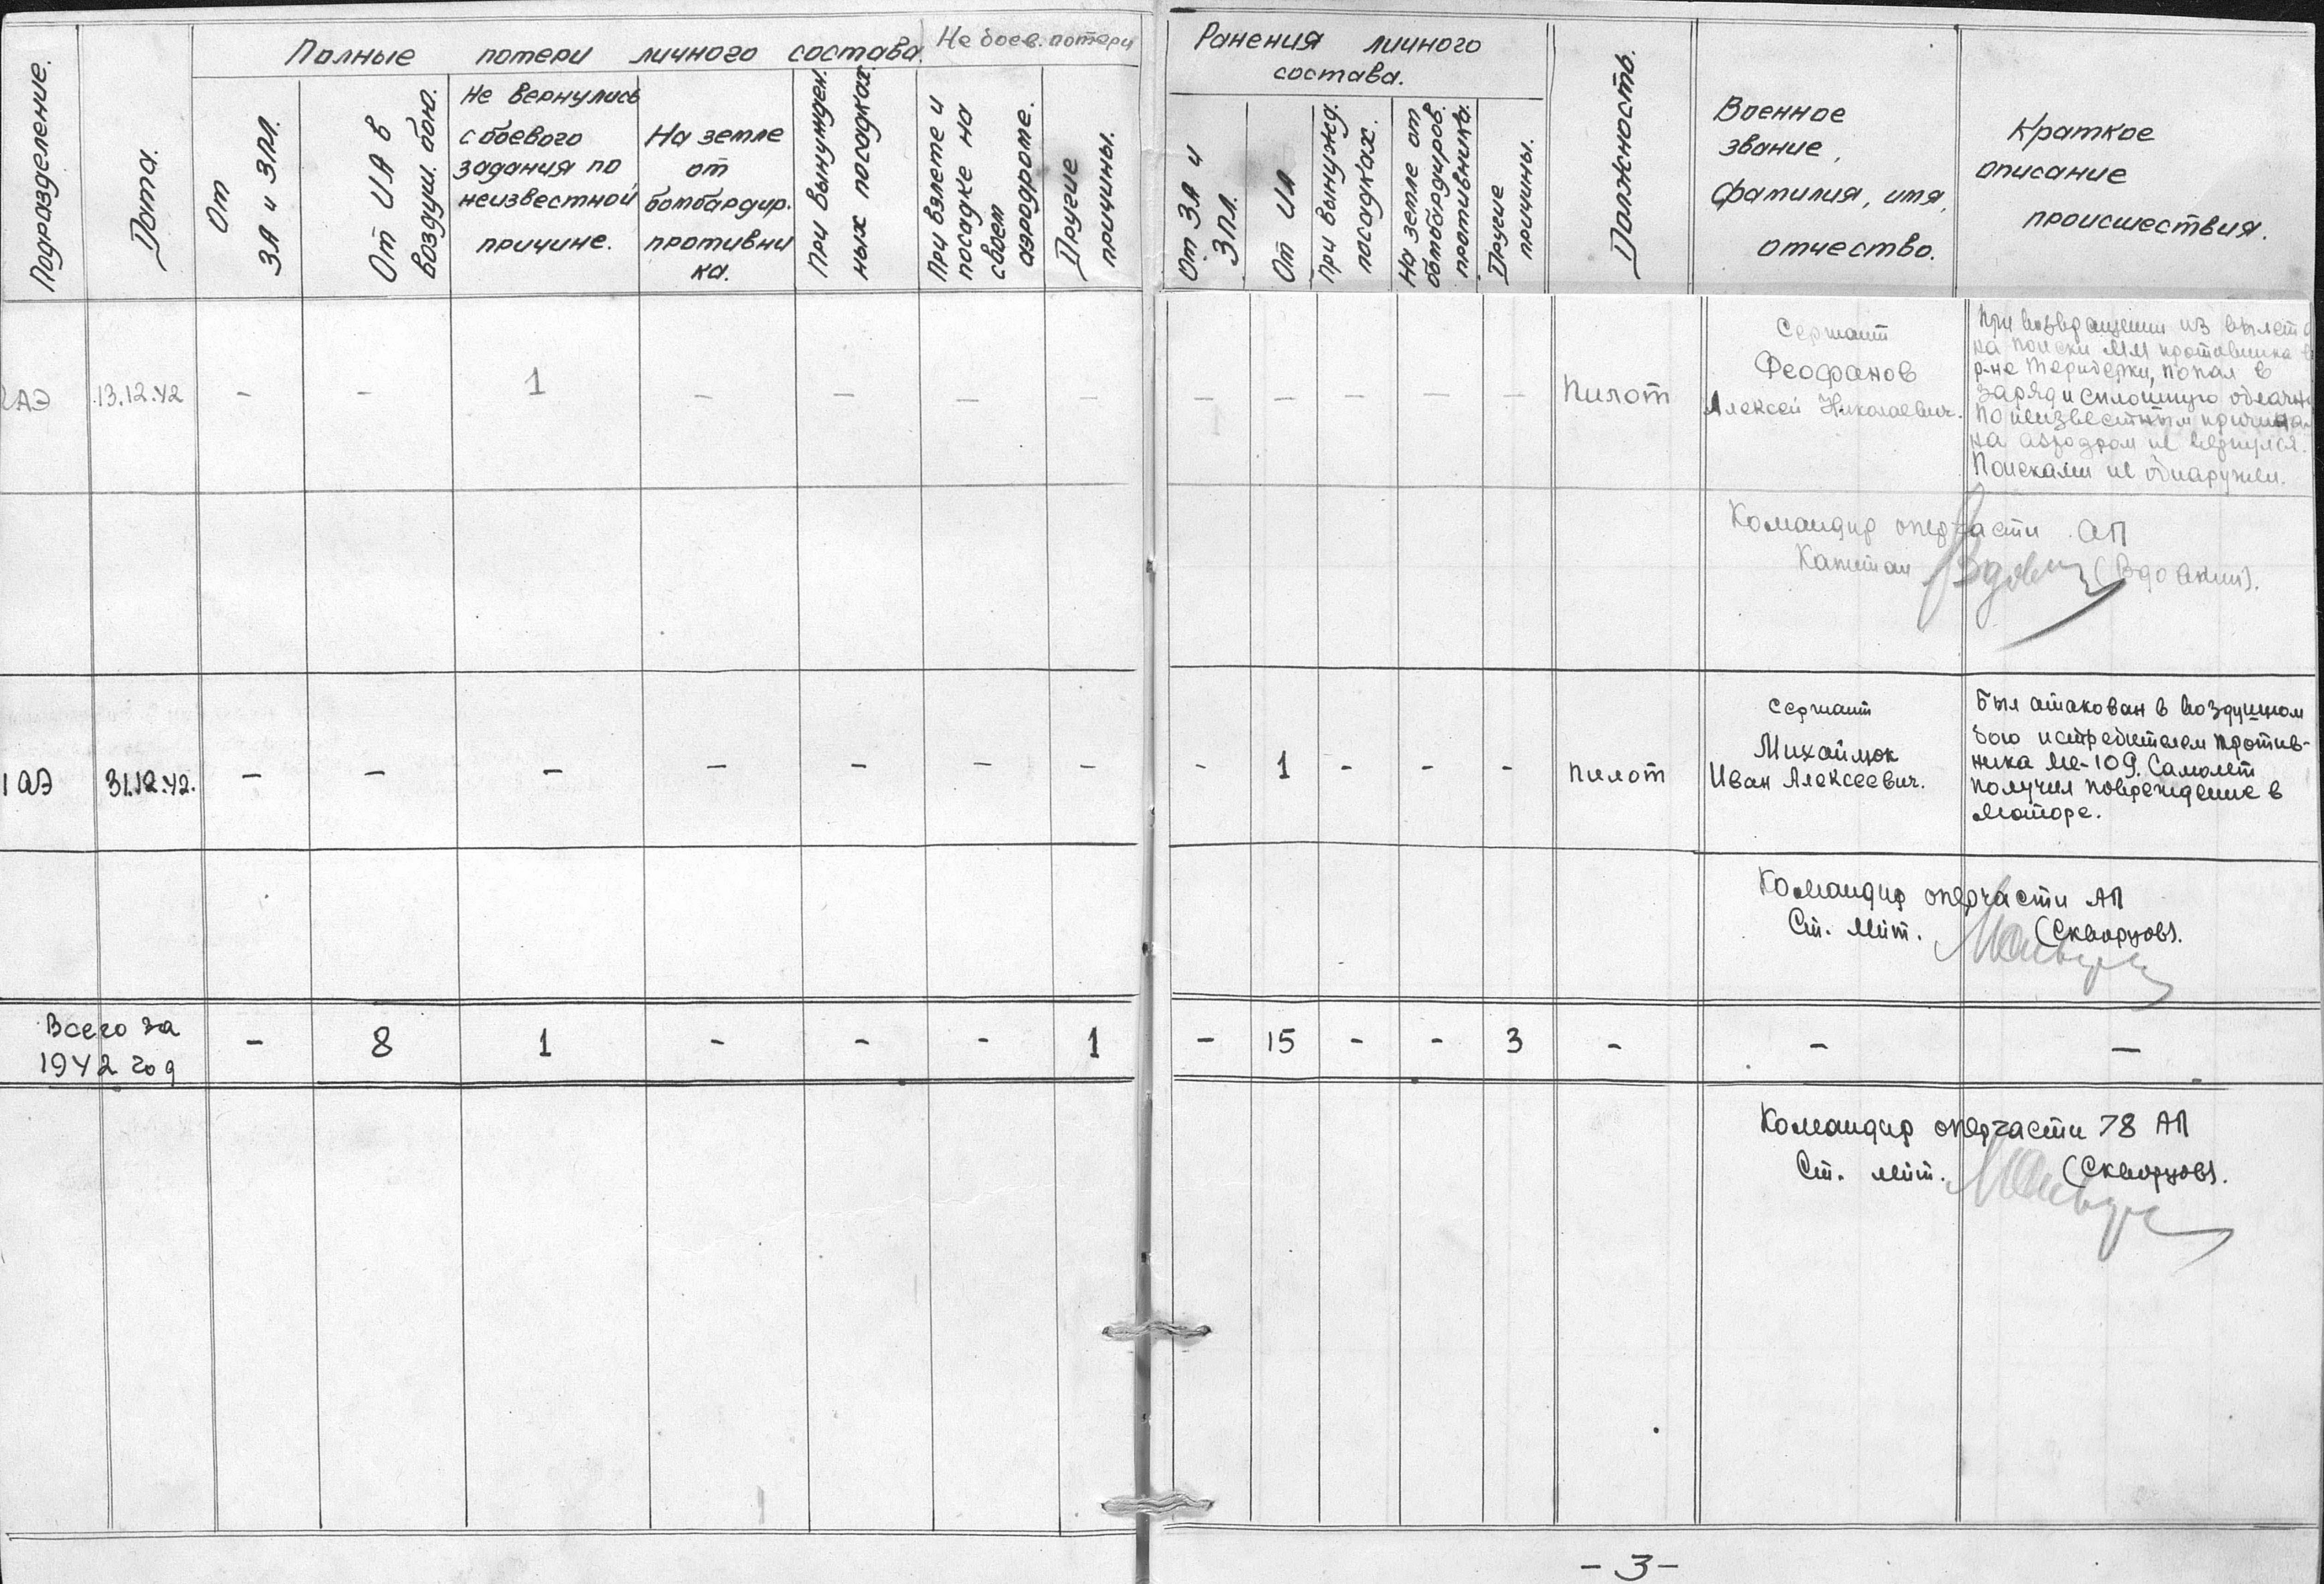 Подразделение.
Дата.
Полные потери личного состава.
Не боев. потери
От
ЗА и ЗПЛ.
От ИА в
воздуш. бою.
Не вернулись
с боевого
задания по
неизвестной
причине.
На земле
от
бомбардир.
противни
ка.
При вынужден
ных посадках.
При взлете и
посадке на
своем
аэродроме.
Другие
причины.
Ранения личного
состава.
От ЗА и
ЗПЛ.
От ИА
При вынужд.
посадках.
На земле от
бомбардиров.
противника.
Другие
причины.
Должность.
Военное
звание,
фамилия, имя,
отчество.
Краткое
описание
происшествия.
АЭ 13.12.42 - - 1 - - - - - - - - - Пилот
Сержант
Феофанов
Алексей Николаевич.
При возвращении из вылета
на поиски ММ противника в
р-не попал в
заряд и сплошную
По неизвестным причинам
на аэродром не вернулся.
Поисками не обнаружен.
Командир оперчасти АП
Капитан (Вдовкин).
1 АЭ 31.12.42. - - - - - - - - 1 - - - пилот
Сержант
Михайлюк
Иван Алексеевич.
Был атакован в воздушном
бою истребителем против-
ника Ме-109. Самолет
получил повреждение в
моторе.
Командир оперчасти АП
Ст. лейт. (Скворцов).
Всего за
1942 год
- 8 1 - - - 1 - 15 - - 3 - - -
Командир оперчасти 78 АП
Ст. лейт. (Скворцов).
- 3 -